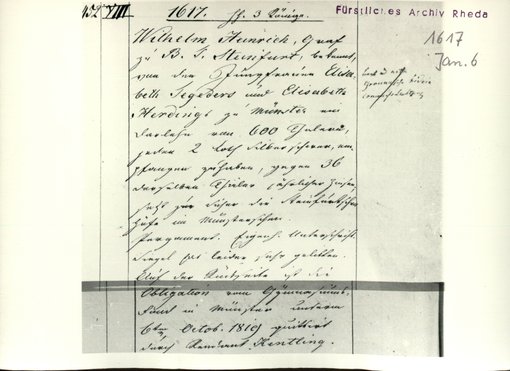 152 VIII 1617. ff. 3 Könige.
Fürstliches Archiv Rheda
1617
Jan. 6
Wilhelm Heinrich, Graf
zu B. T. Steinfurt, bekennt,
von den Jungfrauen Elisa-
beth Segeders und Elisabeth
Herdings zu Münster ein
Darlehn von 600 Thalern,
jeden 2 Loth Silber schwer, em-
pfangen zu haben, gegen 36
derselben Thaler jährlicher Zinsen,
setzt zur Sicher die Steinfurtschen
Höfe im Münsterschen.
Pergament. Eigenh. Unterschrift.
Siegel hat leider sehr gelitten.
Auf der Rückseite ist die
Obligation vom Gymnasiums-
Fond in Münster unterm
6ten Octob. 1819 quittirt
durch Rendant Kentling.